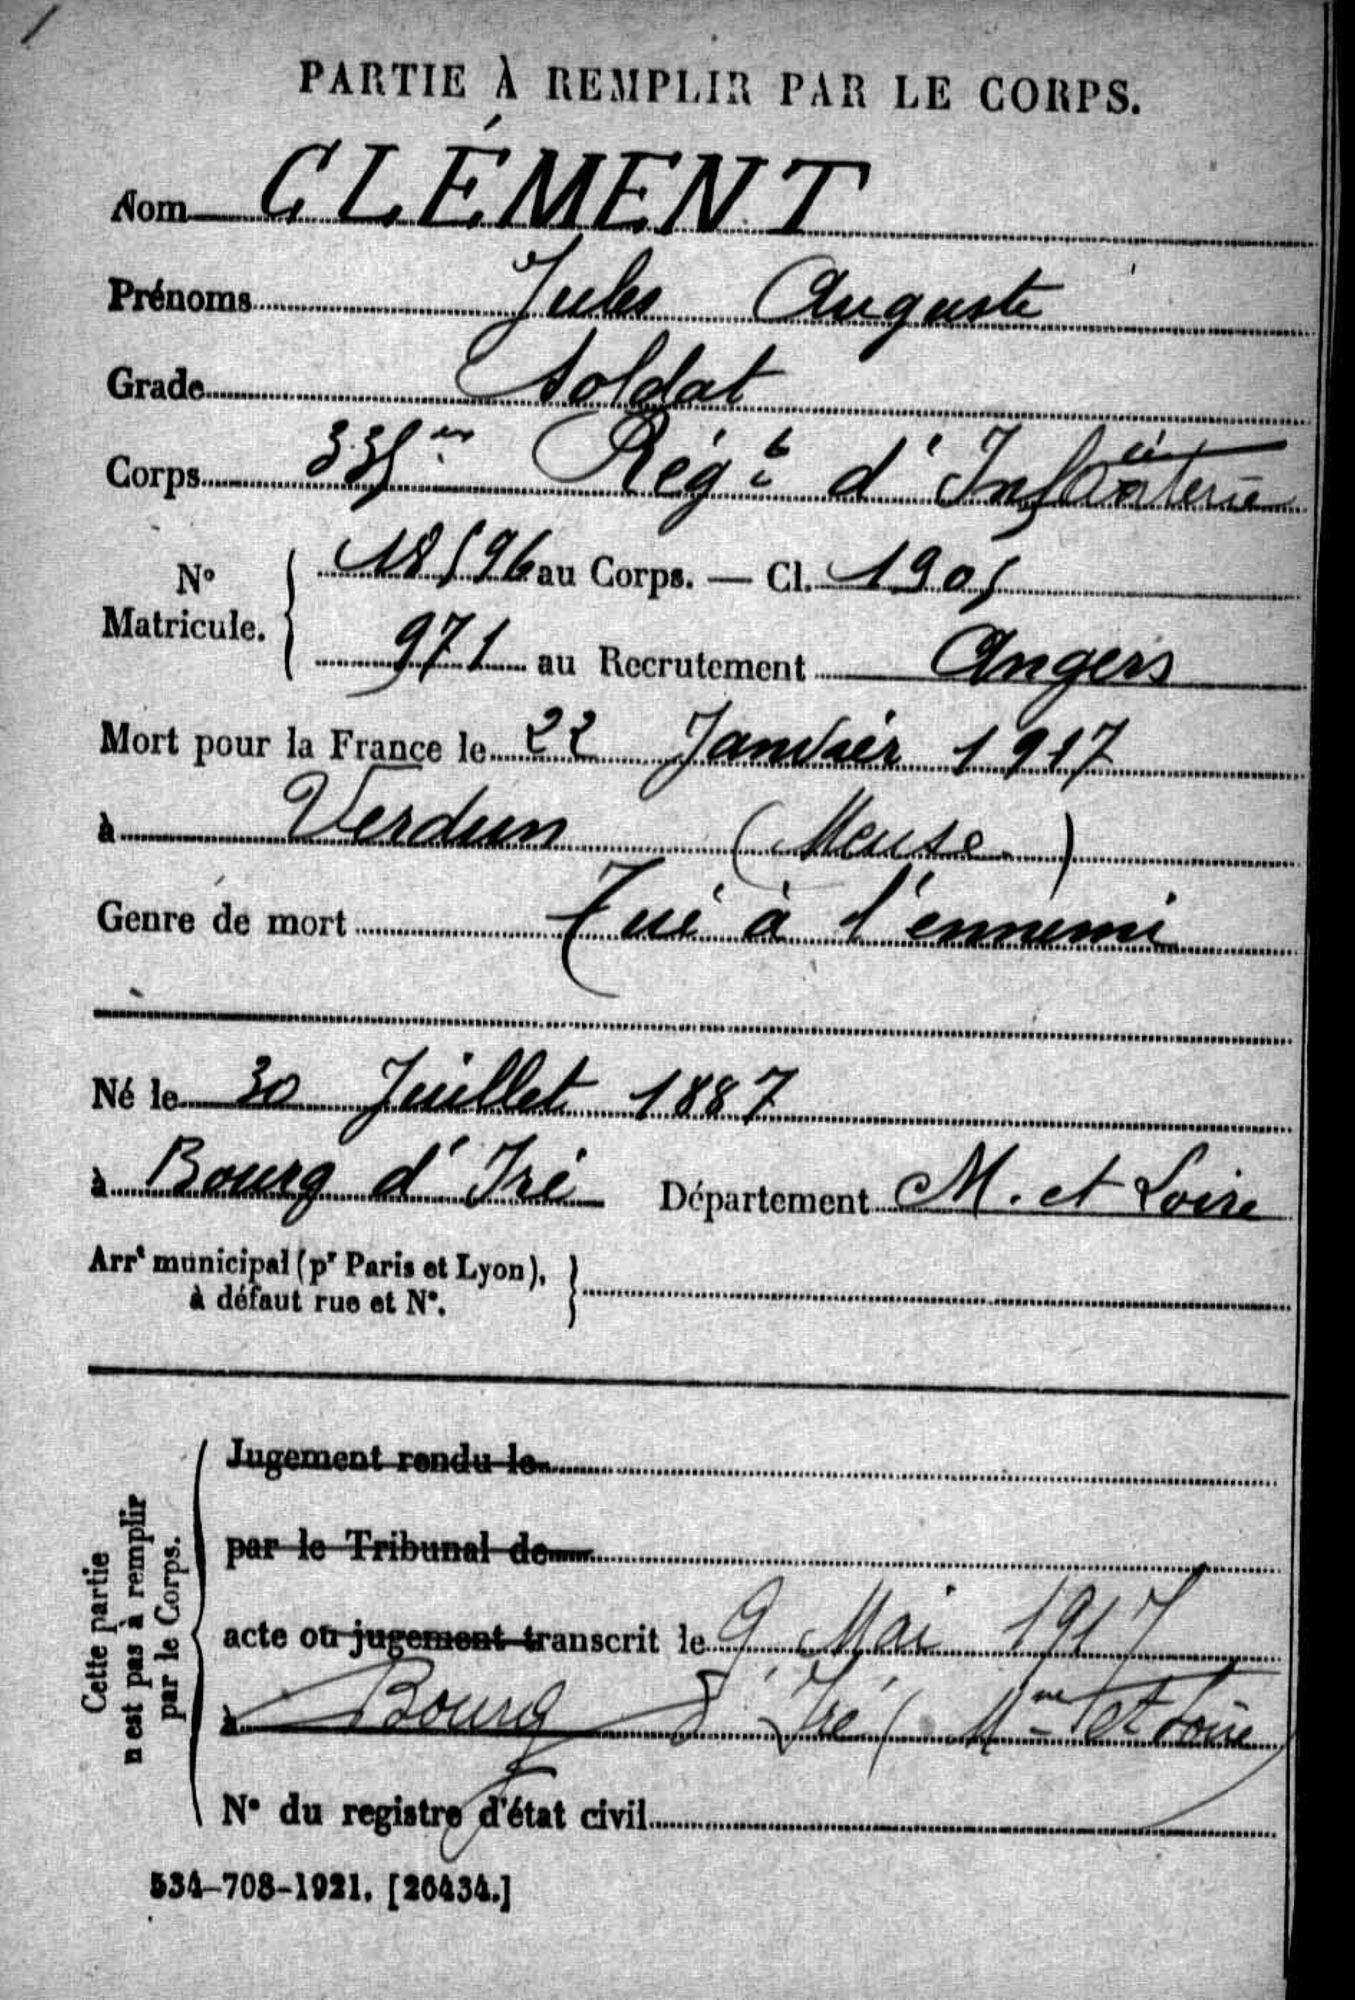 PARTIE À REMPLIR PAR LE CORPS.
Nom CLÉMENT
Prénoms Jules Auguste
Grade Soldat
Corps 335me Régt d'Infanterie
No Matricule. { 18596 au Corps. — Cl. 1905
971 au Recrutement Angers
Mort pour la France le 22 Janvier 1917
à Verdun (Meuse)
Genre de mort Tué à l'ennemi
Né le 30 Juillet 1887
à Bourg d'Iré Département M. et Loire
Arrt municipal (pr Paris et Lyon), }
à défaut rue et No.
Cette partie n'est pas à remplir par le Corps.
Jugement rendu le
par le Tribunal de
acte ou jugement transcrit le 9 Mai 1917
à Bourg d'Iré (Mne et Loire)
No du registre d'état civil
534-708-1921. [26434.]